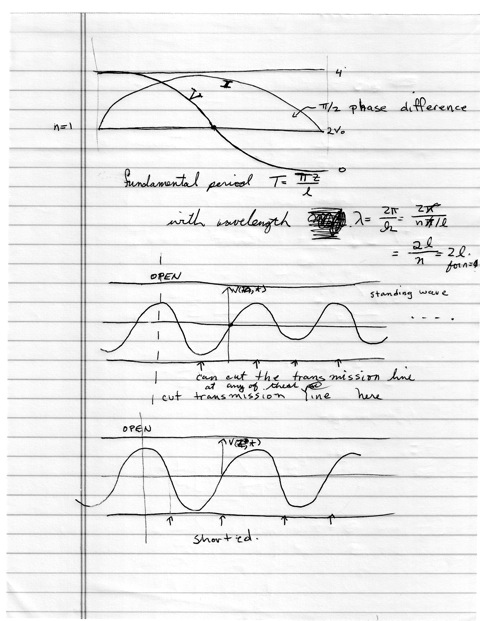 4
I
π/2 phase difference
n=1
2V₀
0
fundamental period T = πz/l
with wavelength λ = 2π/k₂ = 2π/nπ/l
= 2l/n = 2l.
for n=1
OPEN
V(z,t)
standing wave
. . . .
can cut the transmission line
at any of these
cut transmission line here
OPEN
V(z,t)
shorted.